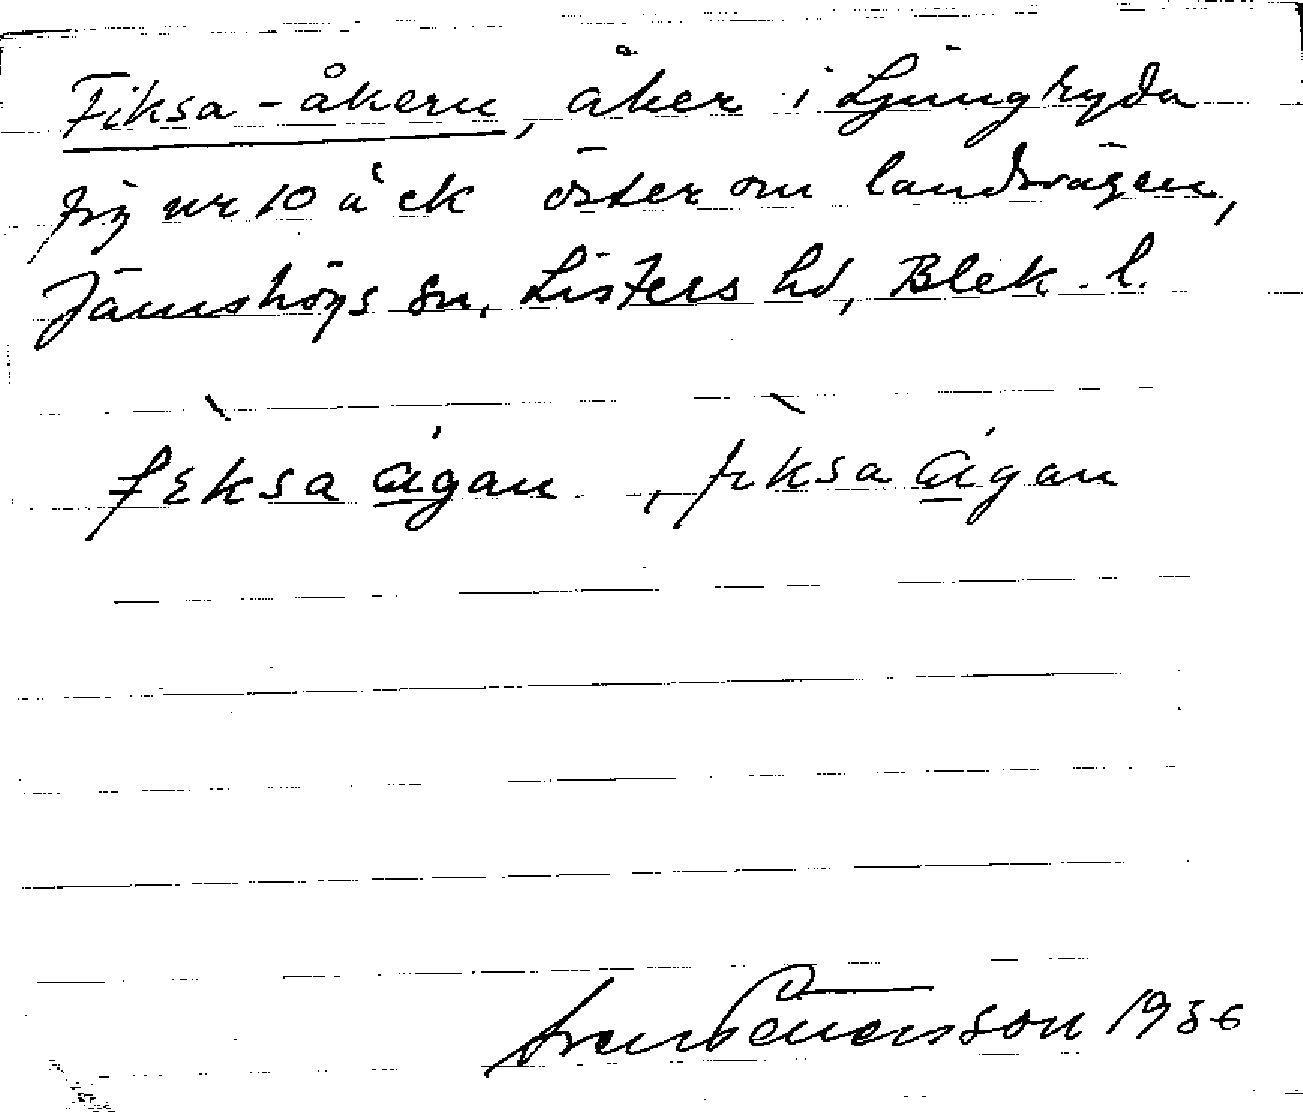 Fiksa-åkern, åker i Ljungryda
fig nr 10 å ek öster om landsvägen,
Jämshögs sn, Listers hd, Blek. l.
fɛ̀ksa ágan, fɪ̀ksa ágan
1936